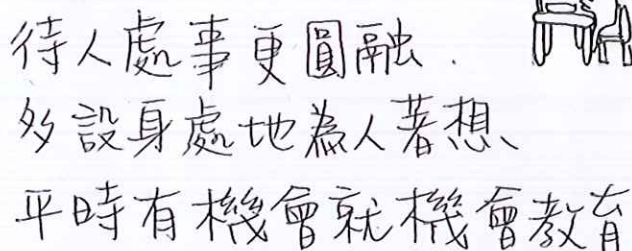 待人處事更圓融.
多設身處地為人著想、
平時有機會就機會教育